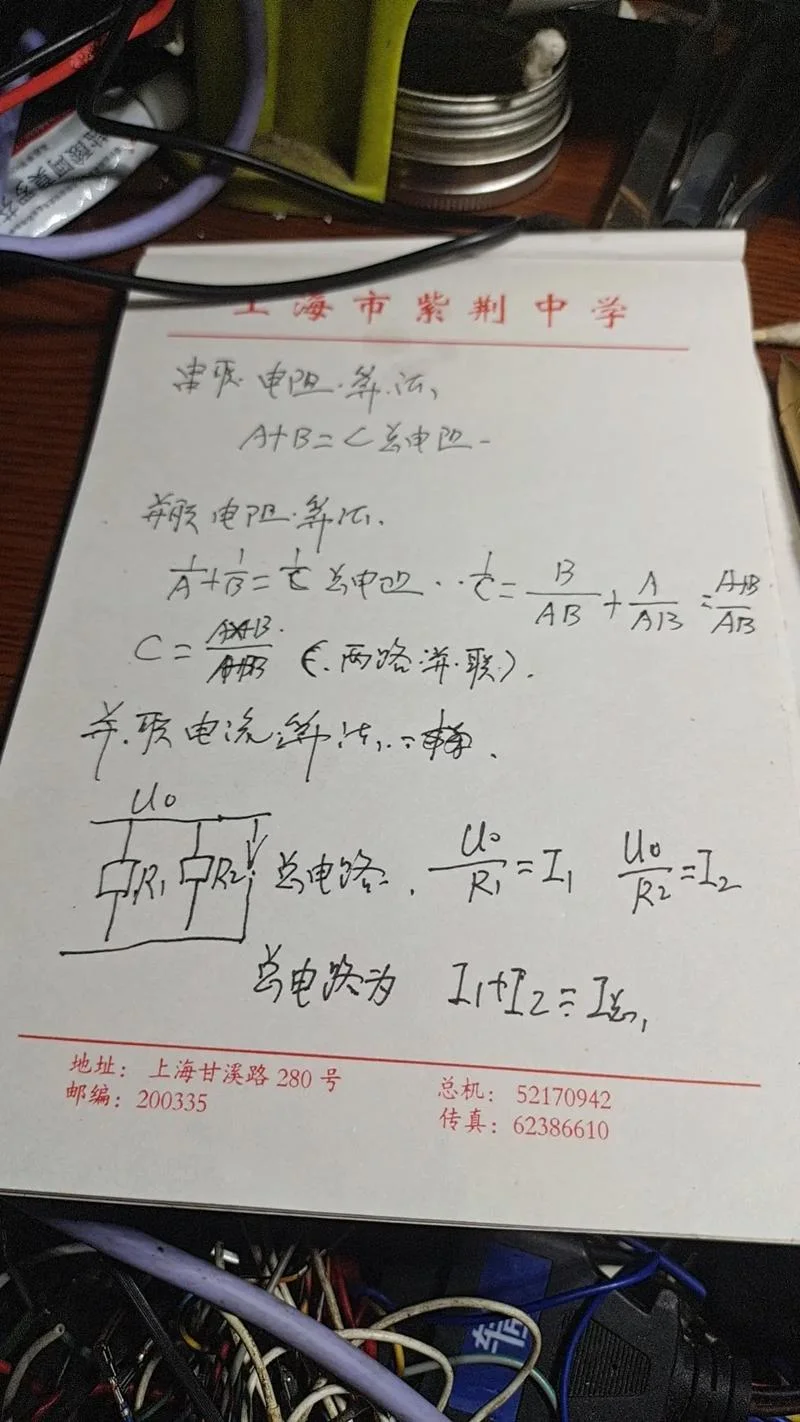 盐酸阿莫罗芬
上海市紫荆中学
串联电阻算法,
A+B=C总电阻
并联电阻算法.
1/A+1/B=1/C 总电阻 1/C=B/AB+A/AB=A+B/AB
C= (两路并联).
并联电流算法:
U0
R1 R2 总电路 U0/R1=I1 U0/R2=I2
总电路为 I1+I2=I总,
地址: 上海甘溪路 280 号
邮编: 200335
总机: 52170942
传真: 62386610